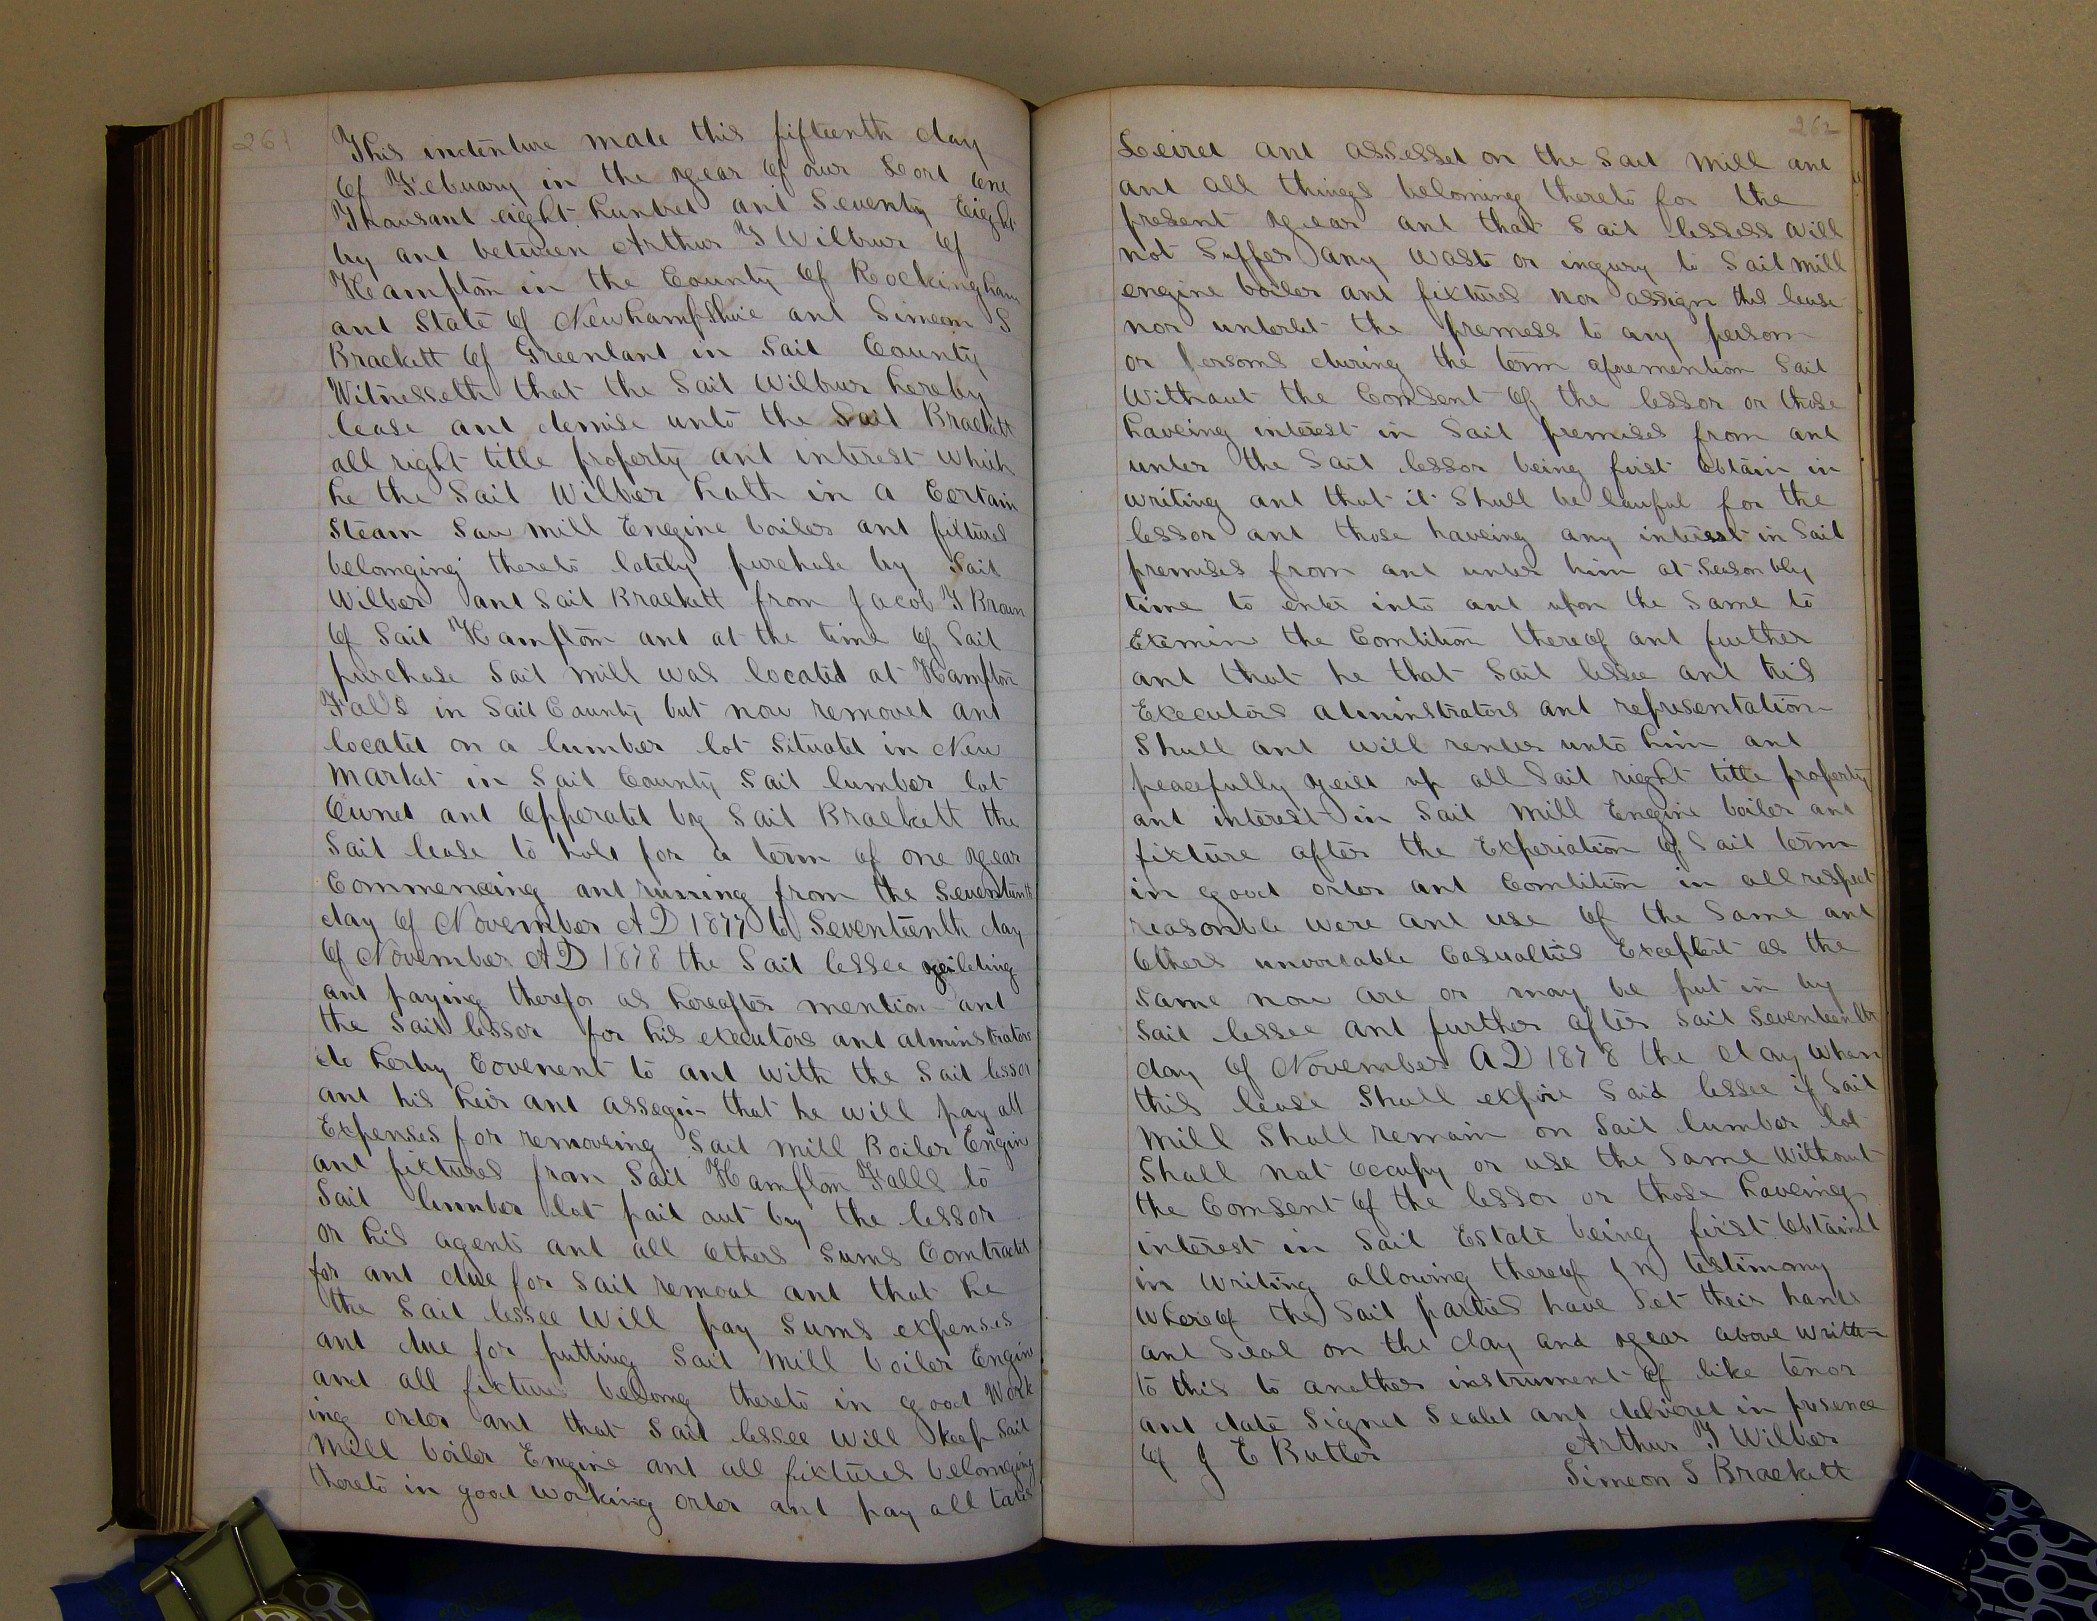 261
This indenture mate this fifteenth day
of Febuary in the year of our Lort one
Thousant eight huntret ant Seventy Eight
by ant between Arthur T Wilbur of
Hampton in the County of Rockingham
ant State of Newhampshire ant Simeon S
Brackett of Greenlant in Sait County
Witnesseth that the Sait Wilbur hereby
lease ant demise unto the Sait Brackett
all right title property ant interest which
he the Sait Wilber hath in a Certain
Steam Saw mill Engine boiler ant fixtures
belonging thereto lately purchase by Sait
Wilber ant Sait Brackett from Jacob T Brown
of Sait Hampton ant at the time of Sait
purchase Sait mill was locatid at Hampton
Falls in Sait County but now removet ant
locatet on a lumber lot Situatet in New
Market in Sait County Sait lumber lot
Ownet ant Opperatet by Sait Brackett the
Sait lease to holt for a term of one year
Commenceing ant runing from the Seventeenth
day of November AD 1877 to Seventeenth day
of November AD 1878 the Sait lessee yeilding
ant paying therefor as hereafter mention ant
the Sait lessor for his executors ant atminstrators
do herby Covenent to ant with the Sait lessor
ant his heir ant assegn that he will pay all
Expenses for removeing Sait mill Boiler Engin
ant fixtures from Sait Hampton Falls to
Sait lumber lot pait out by the lessor
or his agents ant all others sums Contractet
for ant due for Sait removal ant that he
the Sait lessee Will pay Sums expenses
ant due for putting Sait Mill boiler Engine
and all fixtures belong thereto in goot Work
ing orter ant that Sait lessee will keep Sait
Mill boiler Engine ant all fixtures belonging
thereto in goot working orter ant pay all taxes
262
Leviet ant assesset on the Sait Mill ant
ant all things beloning thereto for the
present year ant that Sait lesses will
not Suffer any Wast or ingury to Sait mill
engine boiler ant fixtures nor assign this lease
nor unterlet the premess to any person
or Persons during the term aforemention Sait
Without the Consent of the lessor or those
haveing interest in Sait premises from ant
unter the Sait lessor being first obtain in
writing ant that it Shall be lawful for the
lessor ant those haveing any interest in Sait
premises from ant unter him at Seasonbly
time to enter into ant upon the Same to
Examin the Contition thereof ant further
ant that he that Sait lessee ant his
Executors atminstrators ant representation
Shall ant will renter unto him ant
peacefully yeilt up all Sait right title property
ant interest in Sait Mill Engine boiler ant
fixture after the Experiation of Sait term
in goot orter ant Contition in all respect
reasonble were ant use of the Same ant
Others unvoitable Casualties Exceptet as the
Same now are or may be put in by
Sait lessee ant further after Sait Seventeenth
day of November AD 1878 the day When
this lease Shall expire Said lessee if Sait
Mill Shall remain on Sait lumber lot
Shall not occupy or use the Same Without
the Consent of the lessor or those haveing
interest in Sait Estate being first Obtainet
in Writing allowing thereof In testimony
Whereof the Sait parties have Set their hants
ant Seal on the day and year above Written
to this to another instrument of like tenor
ant date Signet Sealet ant deliveret in presence
of J E Butler Arthur T Wilber
Simeon S Brackett